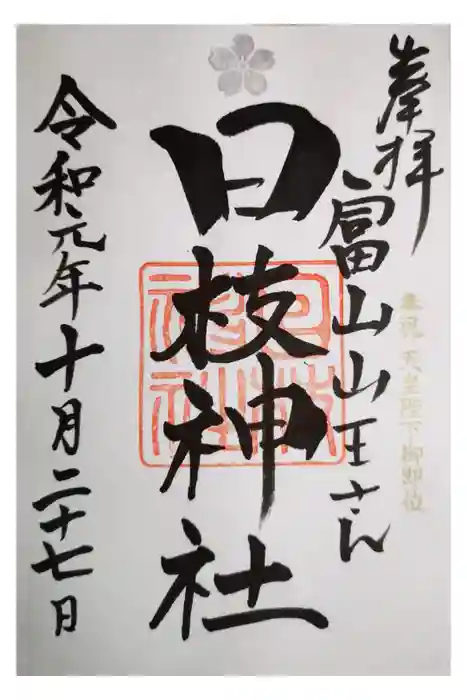 奉拝
奉祝 天皇陛下御即位
富山山王さん
日枝神社
日枝神社
令和元年十月二十七日